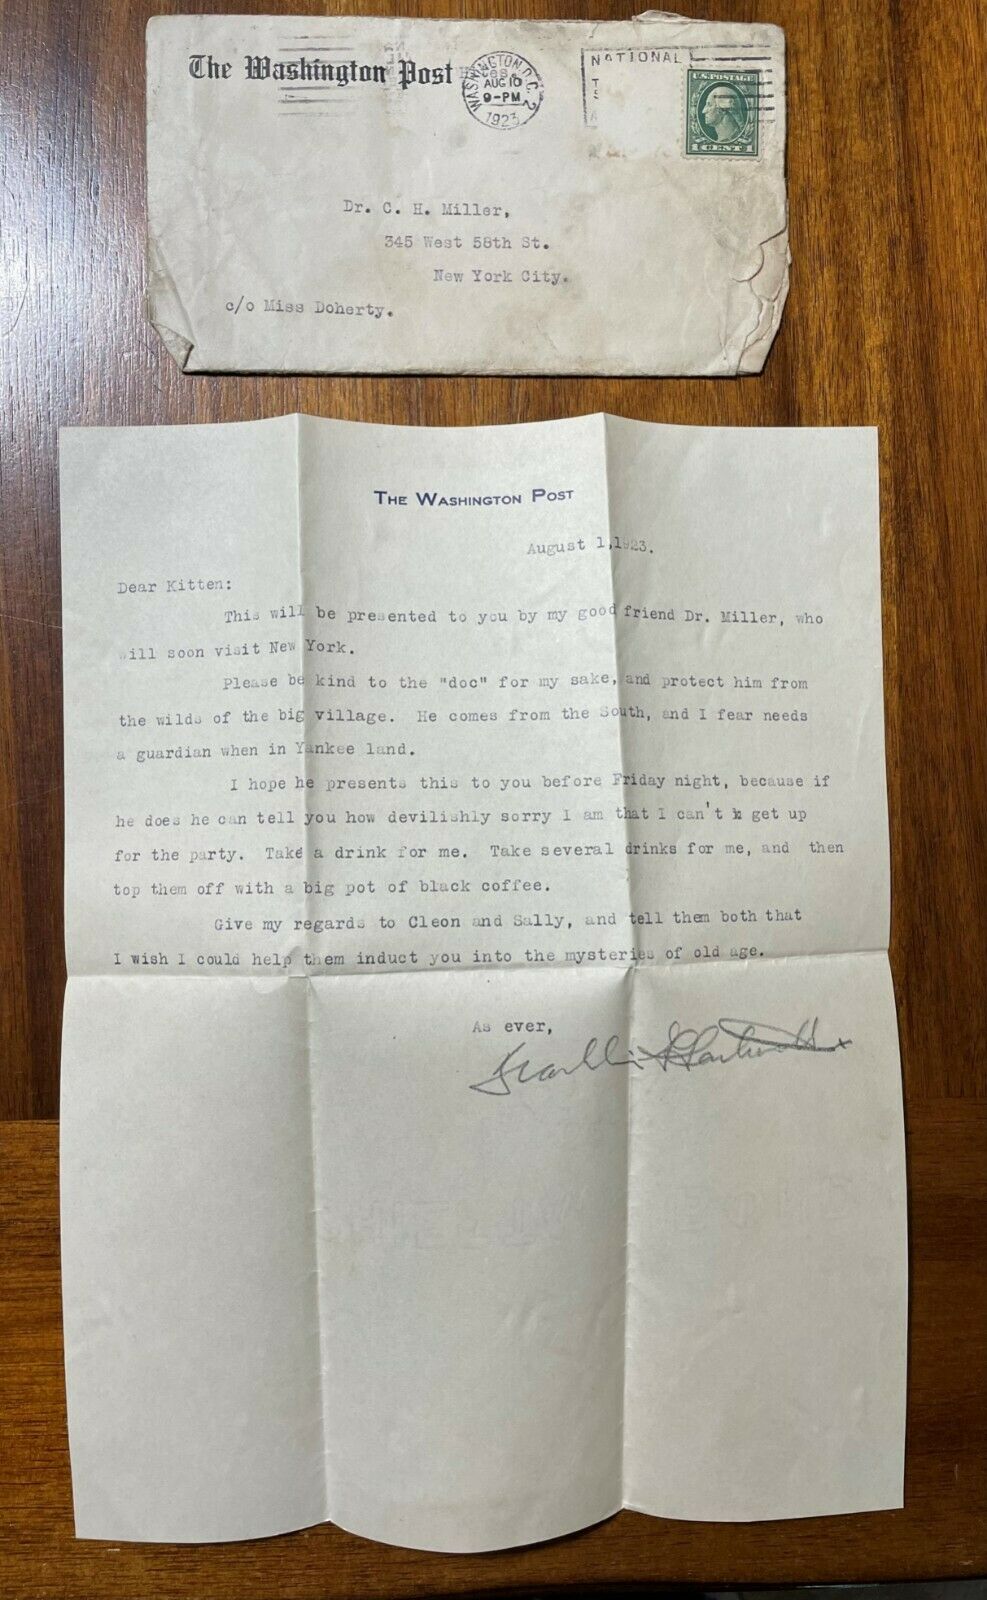 The Washington Post
WASHINGTON, D.C. 2
AUG 10
9-PM
1923
NATIONAL
U.S. POSTAGE
1 CENT 1
Dr. C. H. Miller,
345 West 58th St.
New York City.
c/o Miss Doherty.
THE WASHINGTON POST
August 1, 1923.
Dear Kitten:
This will be presented to you by my good friend Dr. Miller, who
will soon visit New York.
Please be kind to the "doc" for my sake, and protect him from
the wilds of the big village. He comes from the South, and I fear needs
a guardian when in Yankee land.
I hope he presents this to you before Friday night, because if
he does he can tell you how devilishly sorry I am that I can't get up
for the party. Take a drink for me. Take several drinks for me, and then
top them off with a big pot of black coffee.
Give my regards to Cleon and Sally, and tell them both that
I wish I could help them induct you into the mysteries of old age.
As ever,